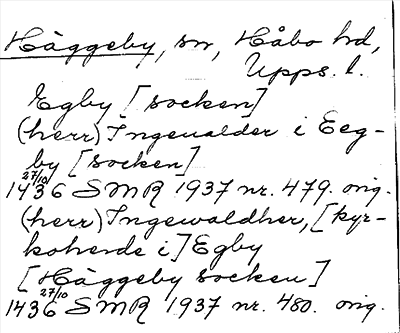 Häggeby, sn, Håbo hd,
Upps. l.
Egby [socken]
(herr) Ingeualder i Eeg-
by [socken]
27/10
1436 SMR 1937 nr. 479. orig.
(herr) Ingewaldher, [kyr-
koherde i] Egby
[Häggeby socken]
27/10
1436 SMR 1937 nr. 480. orig.